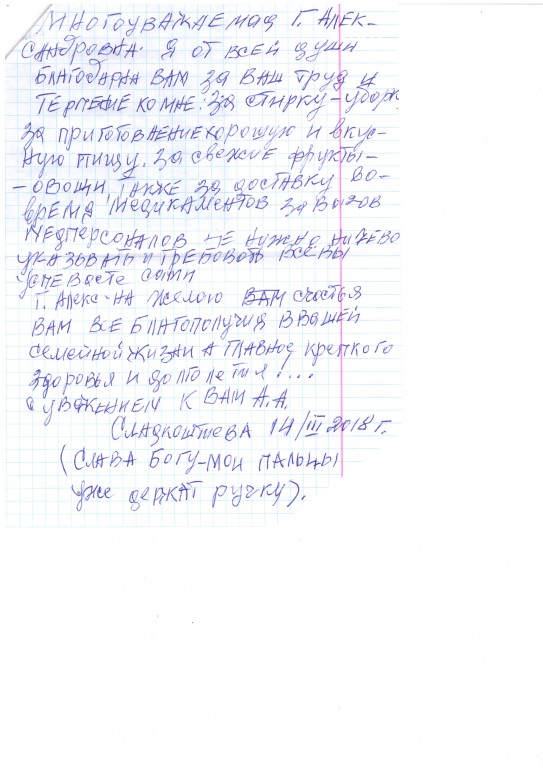 Многоуважаемая Г. Алек-
сандровна. Я от всей души
благодарна Вам за Ваш труд и
терпение ко мне: за стирку-уборк
за приготовление хорошую и вкус-
ную пищу. за свежие фрукты-
-овощи, также за доставку во-
время медикаментов за вызов
медперсоналов не нужно ничево
указывать и требовать все Вы
успеваете сами
Г. Алекс-на желаю Вам счастья
Вам все благополучия в вашей
семейной жизни а главное крепкого
здоровья и долголетия!...
с уважением к Вам А.А.
Сладкоштиева 14/III 2018 г.
(Слава Богу-мои пальцы
уже держат ручку).